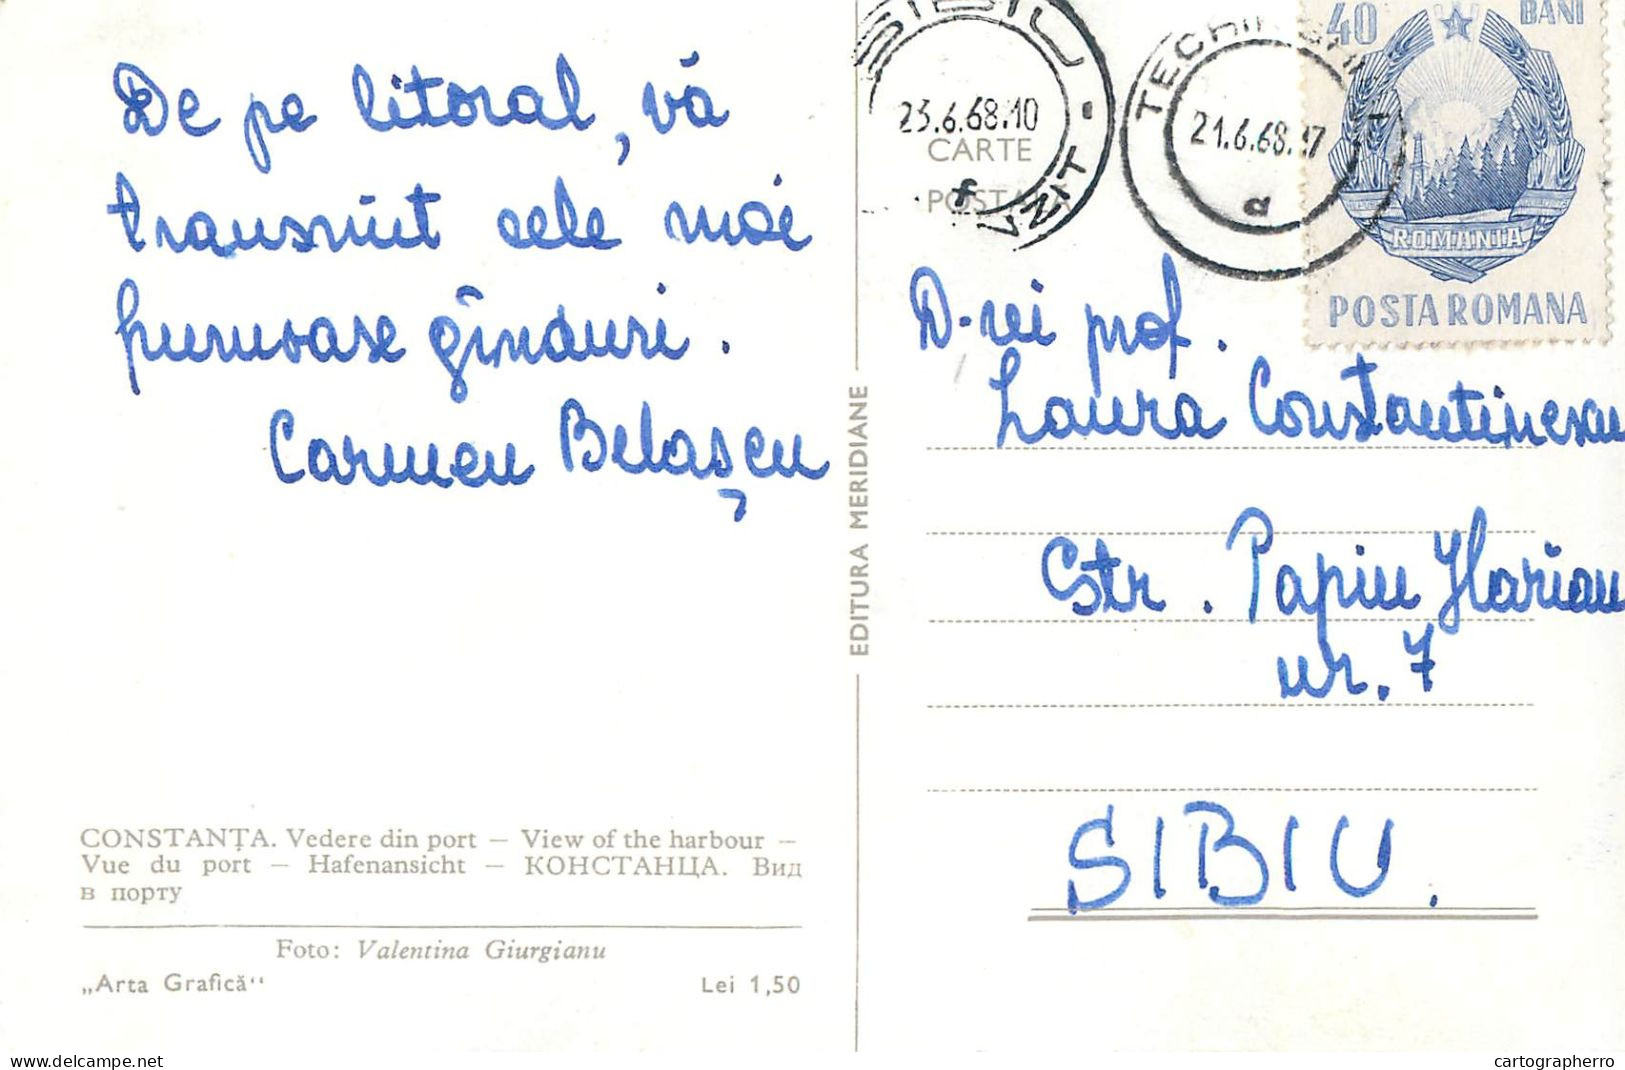 De pe litoral, vă
transmit cele mai
frumoase gînduri.
Carmen Belașcu
CONSTANȚA. Vedere din port — View of the harbour —
Vue du port — Hafenansicht — КОНСТАНЦА. Вид
в порту
Foto: Valentina Giurgianu
„Arta Grafică“
Lei 1,50
EDITURA MERIDIANE
SIBIU
23.6.68.10
VINIT
f
CARTE
POSTALA
TECHIRGHIOL
21.6.68.17
a
40 BANI
ROMANIA
POSTA ROMANA
D-rei prof.
Laura Constantinescu
Str. Papiu Ilarian
nr. 7
SIBIU.
delcampe.net
cartographerro